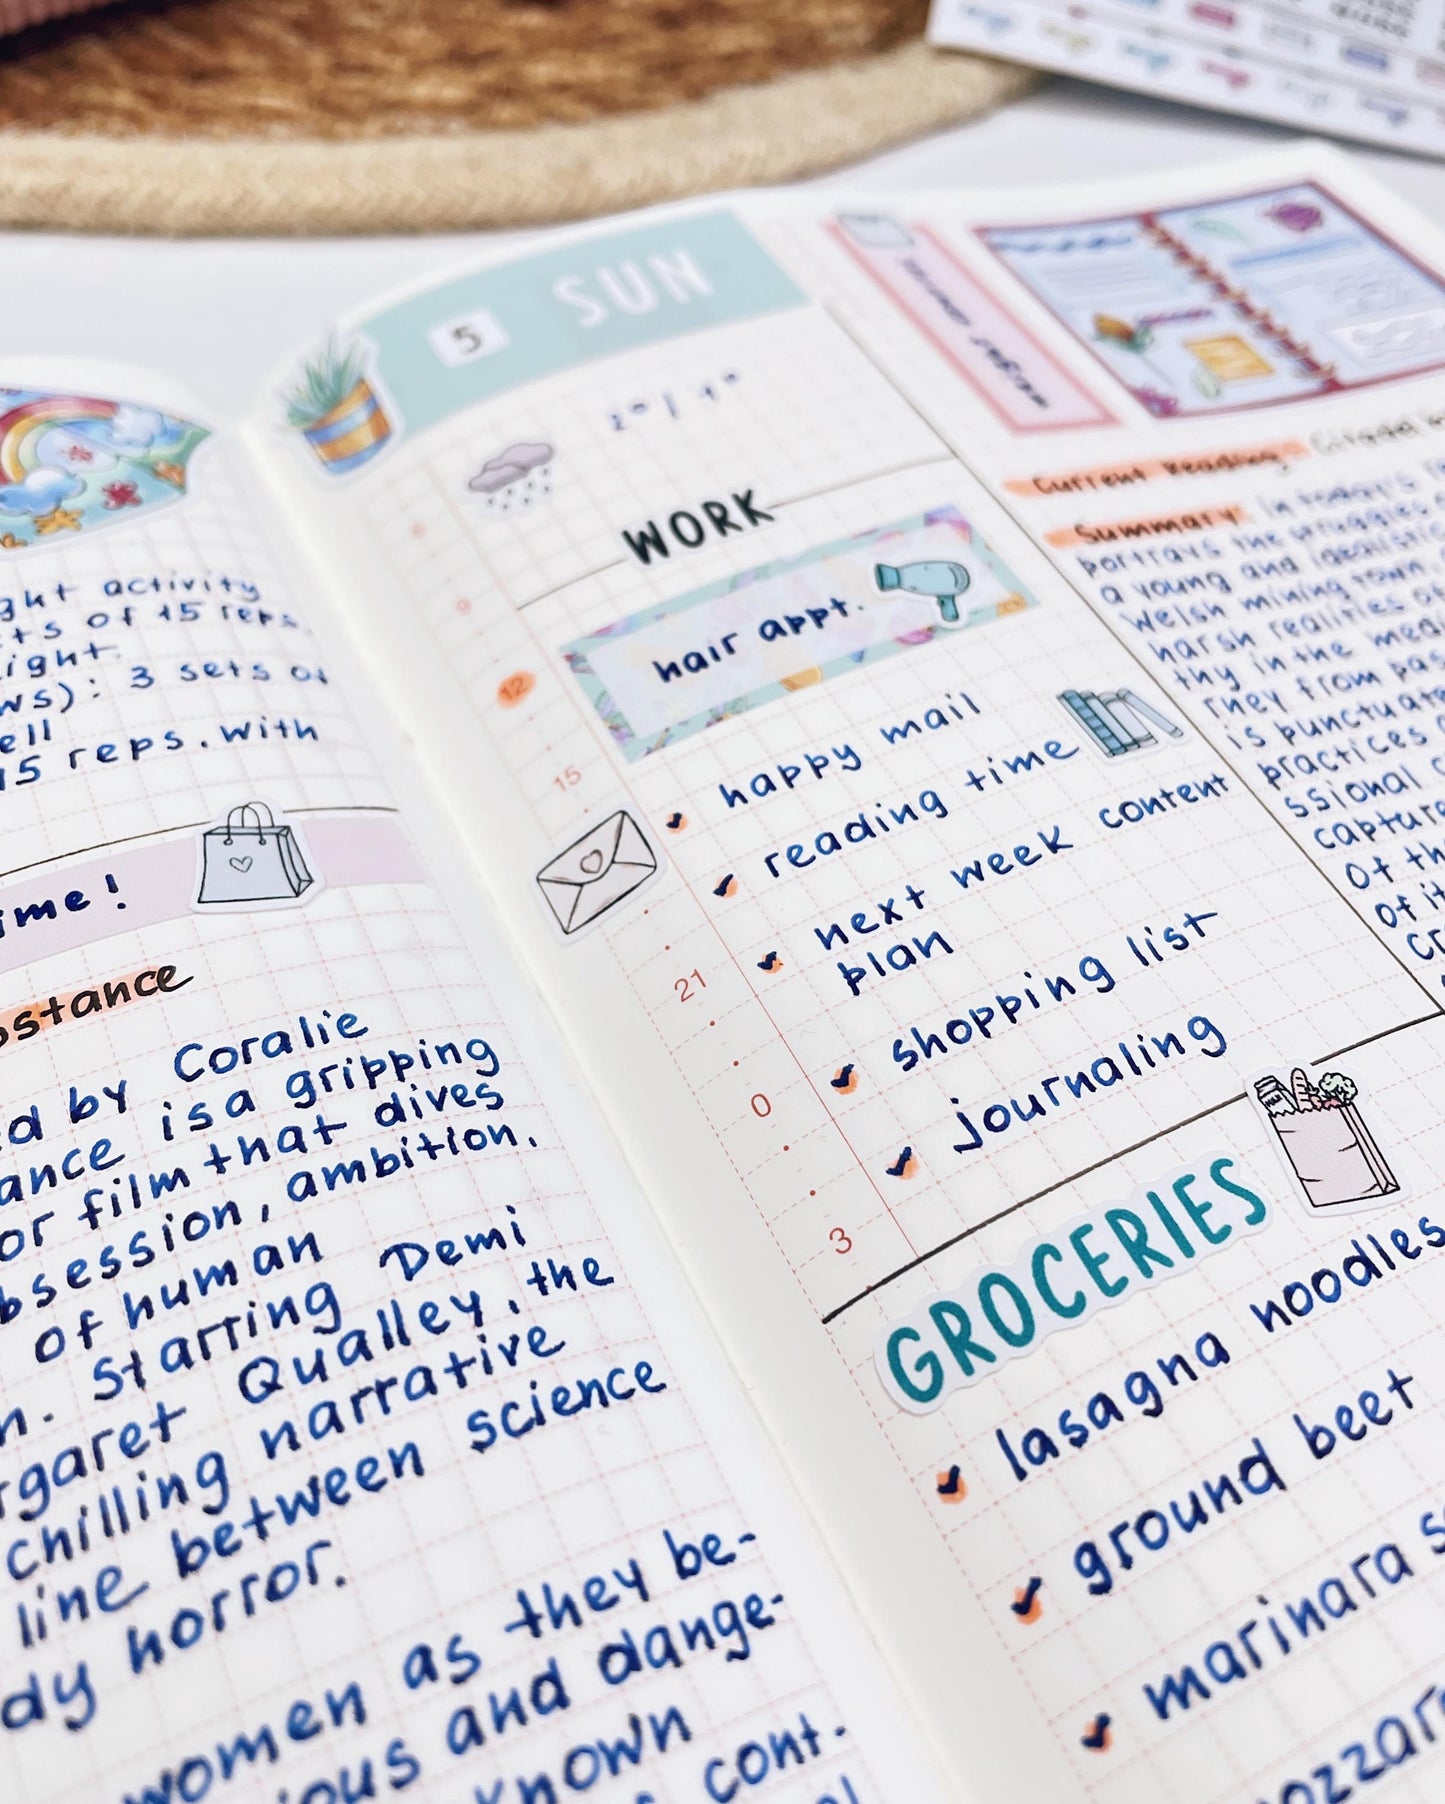 ght activity
ts of 15 reps.
ight.
ws): 3 sets of
ell
15 reps. with
ime!
bstance
ed by Coralie
ance is a gripping
or film that dives
bsession, ambition,
of human
n. Starring Demi
rgaret Qualley, the
chilling narrative
line between science
dy horror.
women as they be-
ious and dange-
known
cont.
5 SUN
WORK
hair appt.
happy mail
reading time
next week content
plan
shopping list
journaling
12
15
21
0
3
GROCERIES
lasagna noodles
ground beef
marinara s
ozzar
Current Reading: Citadel
Summary: In today's
portrays the struggles
a young and idealistic
Welsh mining town.
harsh realities of
thy in the medi
rney from pas
is punctuate
practices
ssional
capture
of th
of it